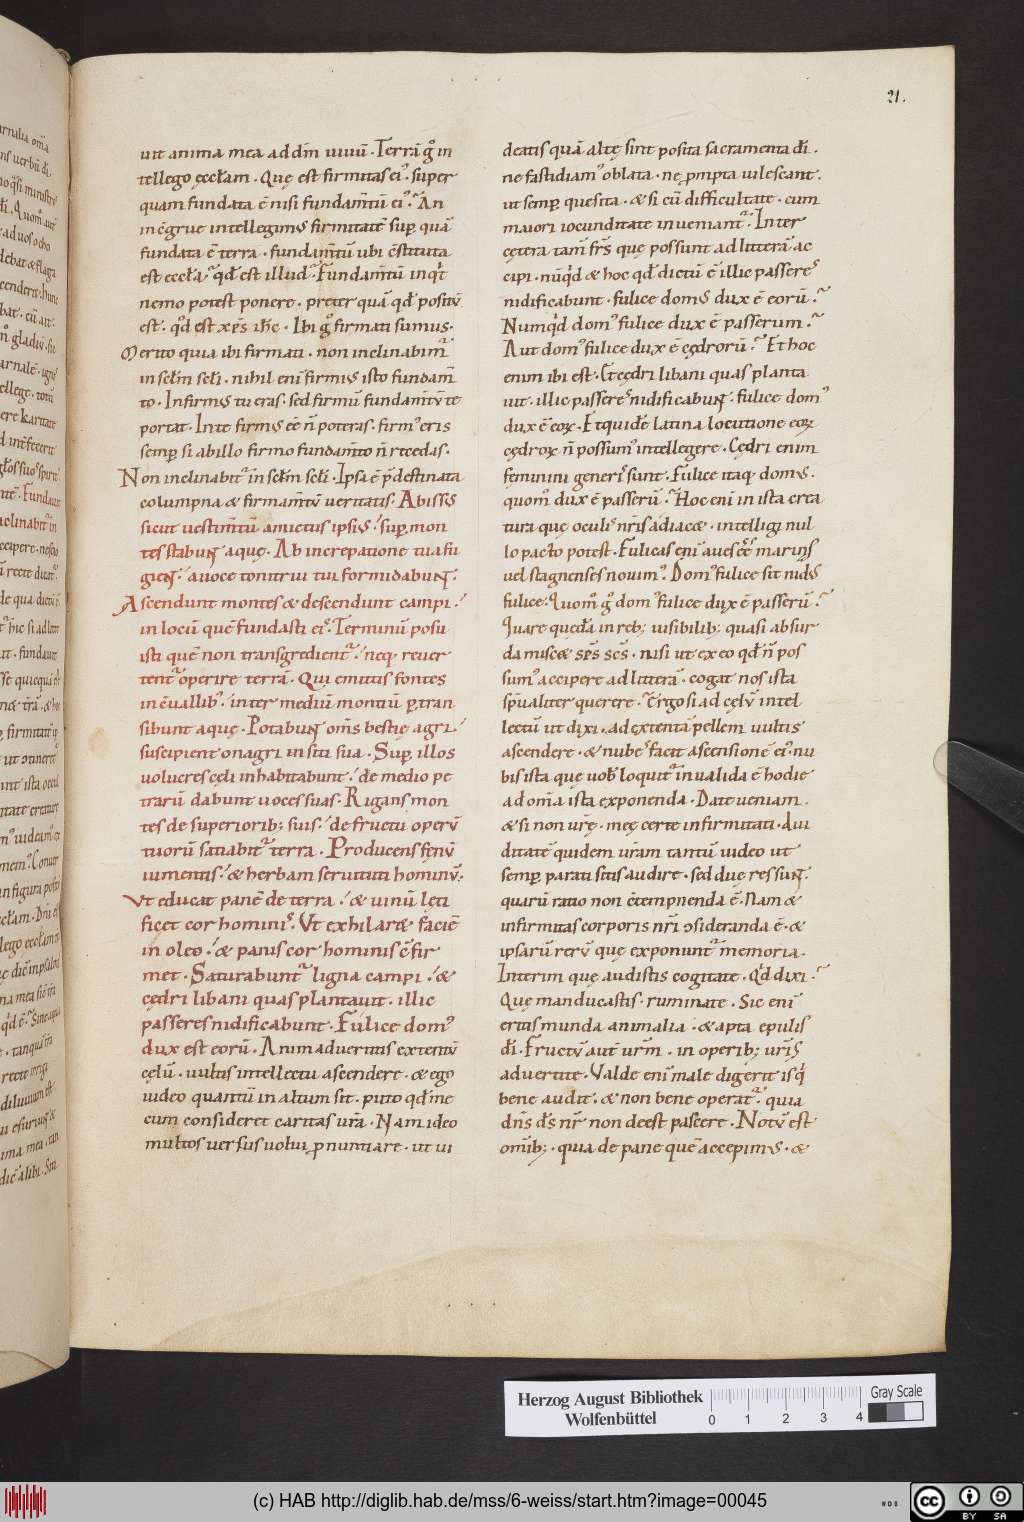 21.
uit anima mea ad dm̄ uiuū. Terrā g̊ in
tellego ęccłam. Quę est firmitas ei᾿. super
quam fundata ē nisi fundam̄tū ei᾿. An
incēgrue intellegimꝰ firmitatē suꝑ quā
fundata ē terra. fundam̄tū ubi cēstituta
est eccła. qđ est illud. Fundam̄tū inqͥt
nemo potest ponere. pręter quā qđ positū
est. qđ est xp̄s ih̄c. Ibi g̊ firmati sumus.
Merito quia ibi firmati. non inclinabim᾿
in sc̄lm sc̄li. nihil eni firmiꝰ isto fundam̄
to. Infirmꝰ tu eras. sed firmū fundam̄tū te
portat. In te firmꝰ eē n̄ poteras. firm᾿ eris
semꝑ si ab illo firmo fundam̄to n̄ recedas.
Non inclinabit᾿ in sc̄lm sc̄li. Ipsa ē p̄destinata
columpna & firmam̄tū ueritatis. Abissꝰ
sicut uestim̄tū amictus ipsiꝰ. suꝑ mon
tes stabunt aquę. Ab increpatione tua fu
gient. a uoce tonitrui tui formidabunt.
Ascendunt montes & descendunt campi.
in locū quē fundasti ei᾿. Terminū posu
isti quē non transgredient᾿. neq; reuer
tent᾿ operire terrā. Qui emittis fontes
in cēuallib᾿. inter mediū montiū ꝑtran
sibunt aquę. Potabunt om̄s bestię agri.
suscipient onagri in siti sua. Suꝑ illos
uolucres cęli inhabitabunt. de medio pe
trarū dabunt uoces suas. Rigans mon
tes de superiorib; suis. de fructu operū
tuorū satiabit᾿ terra. Producens fęnū
iumentis. & herbam seruituti hominū.
Ut educat panē de terra. & uinū lęti
ficet cor homini᾿. Ut exhilar& faciē
in oleo. & panis cor hominis cēfir
met. Saturabunt᾿ ligna campi. &
cędri libani quas plantauit. illic
passeres nidificabunt. Fulice dom᾿
dux est eorū. Animaduertitis extentū
cęlū. uultis intellectu ascendere. & ego
uideo quantū in altum sit. puto qđ me
cum consideret caritas ur̄a. Nam ideo
multos uersus uolui ꝓnuntiare. ut ui
deatis quā altę sint posita sacramenta dī.
ne fastidiam᾿ oblata. nę ꝓmpta uilescant.
ut semꝑ quesita. & si cū difficultate. cum
maiori iocunditate inueniant᾿. Inter
cętera tam̄ fr̄s quę possunt ad litterā ac
cipi. nūqͥd & hoc qđ dictū ē illic passere᾿
nidificabunt. fulice domꝰ dux ē eorū.
Numqͥd dom᾿ fulice dux ē passerum.
Aut dom᾿ fulice dux ē cędrorū. Et hoc
enim ibi est. Et cędri libani quas planta
uit. illic passere᾿ nidificabunt. fulice dom᾿
dux ē eoꝝ. Et quidē latina locutione eoꝝ
cędroꝝ n̄ possum᾿ intellegere. Cędri enim
feminini generi᾿ sunt. Fulice itaq; domꝰ.
quom̊ dux ē passerū. Hoc eni in ista crea
tura quę oculi᾿ nr̄is adiac&. intelligi nul
lo pacto potest. Fulicas eni aues eē marinas
uel stagnenses nouim᾿. Dom᾿ fulice sit nidꝰ
fulice. Quom̊ g̊ dom᾿ fulice dux ē passerū.
Quare quędā in reb; uisibilib; quasi absur
da misc& sp̄s sc̄s. nisi ut ex eo qđ n̄ pos
sum᾿ accipere ad litterā. cogat nos ista
sp̄ualiter querere. Ergo si ad cęlū intel
lectū ut dixi. ad extentā pellem uultis
ascendere. & nube᾿ facit ascensionē ei᾿. nu
bis ista quę uob̄ loquit᾿ inualida ē hodie
ad om̄a ista exponenda. Date ueniam.
& si non ur̄ę. meę certe infirmitati. Aui
ditatē quidem ur̄am tantū uideo ut
semꝑ parati sitis audire. sed duę res sunt.
quarū ratio non cētempnenda ē. Nam &
infirmitas corporis nr̄i cōsideranda ē. &
ipsarū rerū quę exponunt᾿ memoria.
Interim quę audistis cogitate. Qđ dixi.
Quę manducastis. ruminate. Sic eni
eritis munda animalia. & apta epulis
dī. Fructū aut̄ ur̄m. in operib; ur̄is
aduertite. Valde eni male digerit is qͥ
bene audit. & non bene operat᾿. quia
dn̄s ds̄ nr̄ non deest pascere. Notū est
om̄ib;. quia de pane quē accepimꝰ. &
Herzog August Bibliothek
Wolfenbüttel
0 1 2 3 4
Gray Scale
(c) HAB http://diglib.hab.de/mss/6-weiss/start.htm?image=00045
WDB
cc BY SA